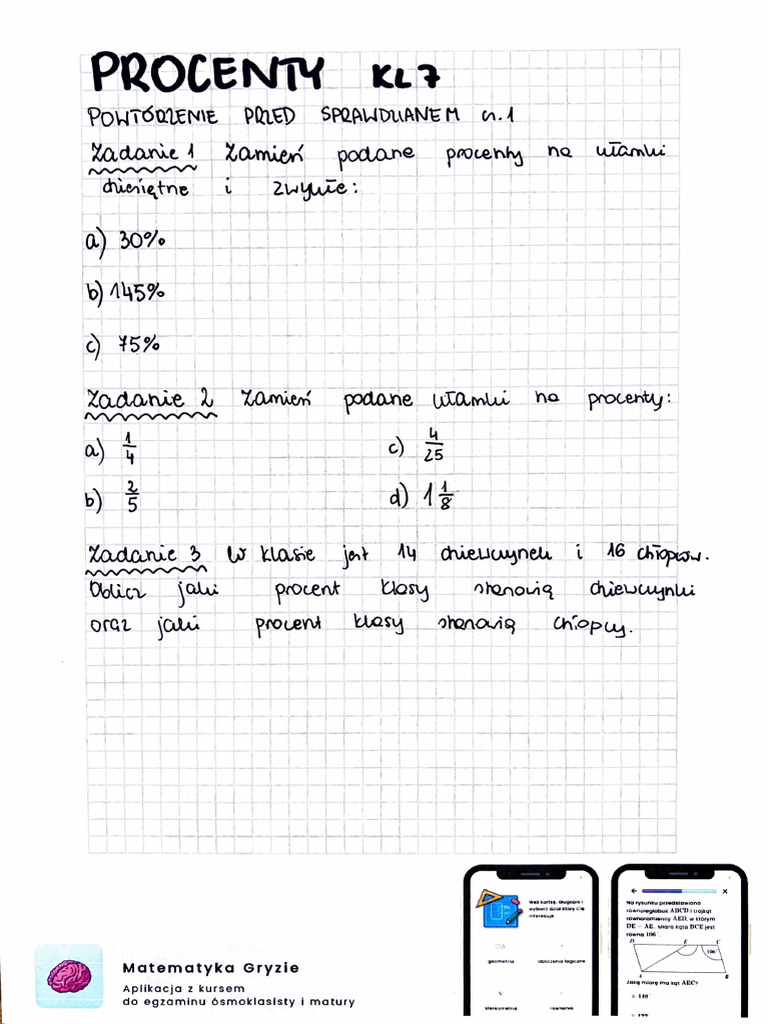 PROCENTY KL 7
POWTÓRZENIE PRZED SPRAWDZIANEM cz. 1
Zadanie 1 Zamień podane procenty na ułamki
dziesiętne i zwykłe:
a) 30%
b) 145%
c) 75%
Zadanie 2 Zamień podane ułamki na procenty:
a) 1/4
c) 4/25
b) 2/5
d) 1 1/8
Zadanie 3 W klasie jest 14 dziewczynek i 16 chłopców.
Oblicz jaki procent klasy stanowią dziewczynki
oraz jaki procent klasy stanowią chłopcy.
Matematyka Gryzie
Aplikacja z kursem
do egzaminu ósmoklasisty i matury
Weź kartkę, długopis i
wybierz dział który Cię
interesuje
geometria
obliczenia logiczne
stereometria
równania
Na rysunku przedstawiono
równoległobok ABCD i trójkąt
równoramienny AED, w którym
DE = AE. Miara kąta DCE jest
równa 106°.
D E C
106°
A B
Jaką miarę ma kąt AEC?
a 148°